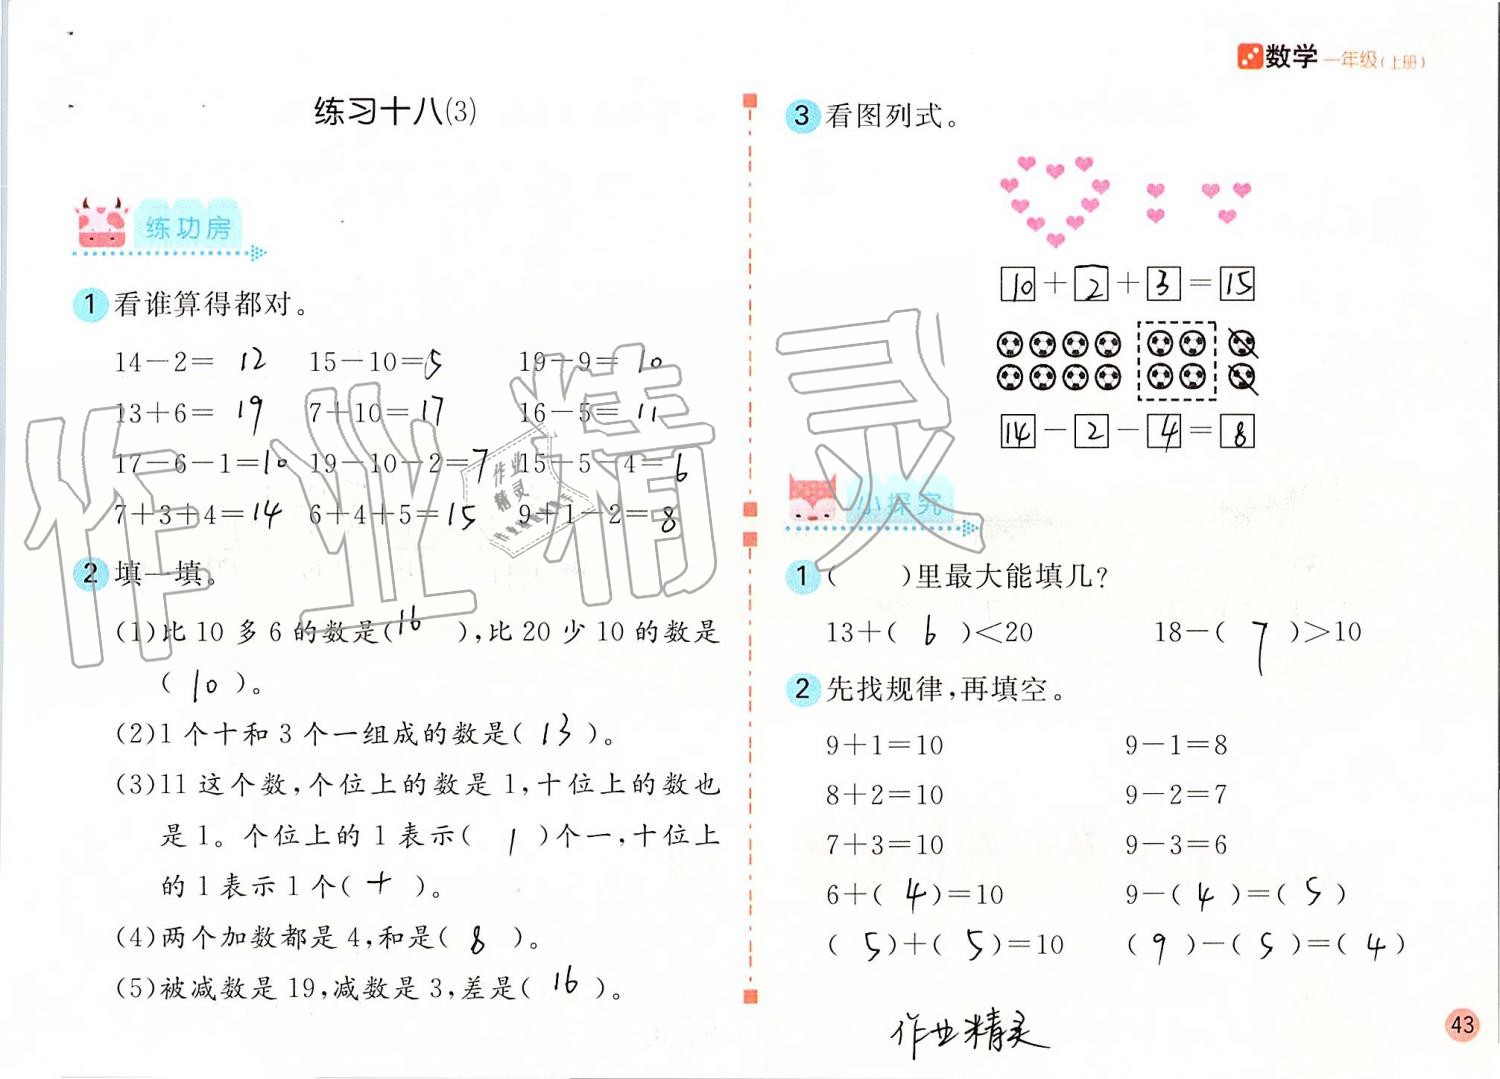 数学 一年级(上册)
练习十八(3)
练功房
1 看谁算得都对。
14－2＝ 12 15－10＝5 19－9＝ 10
13＋6＝ 19 7＋10＝17 16－5＝ 11
17－6－1＝10 19－10－2＝7 15－5－4＝6
7＋3＋4＝14 6＋4＋5＝15 9＋1－2＝8
2 填一填。
(1)比10多6的数是(16),比20少10的数是
(10)。
(2)1个十和3个一组成的数是(13)。
(3)11这个数,个位上的数是1,十位上的数也
是1。个位上的1表示(1)个一,十位上
的1表示1个(十)。
(4)两个加数都是4,和是(8)。
(5)被减数是19,减数是3,差是(16)。
3 看图列式。
10＋2＋3＝15
14－2－4＝8
小探究
1 ( )里最大能填几?
13＋(6)＜20 18－(7)＞10
2 先找规律,再填空。
9＋1＝10 9－1＝8
8＋2＝10 9－2＝7
7＋3＝10 9－3＝6
6＋(4)＝10 9－(4)＝(5)
(5)＋(5)＝10 (9)－(5)＝(4)
作业精灵
43
作业精灵
作业
精灵